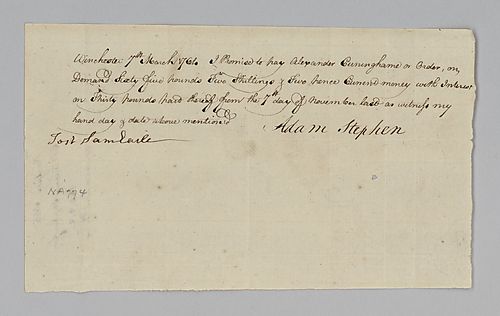 Winchester 7th March 1764 I Promise to pay Alexander Cuninghame or Order, on
Demand Sixty five pounds Five Shillings & Five pence Curent money with Interest
on Thirty pounds paid thereof from the 7th day of November last as witness my
hand day & date above mentioned
Adam Stephen
Test Sam Earle
NA 794